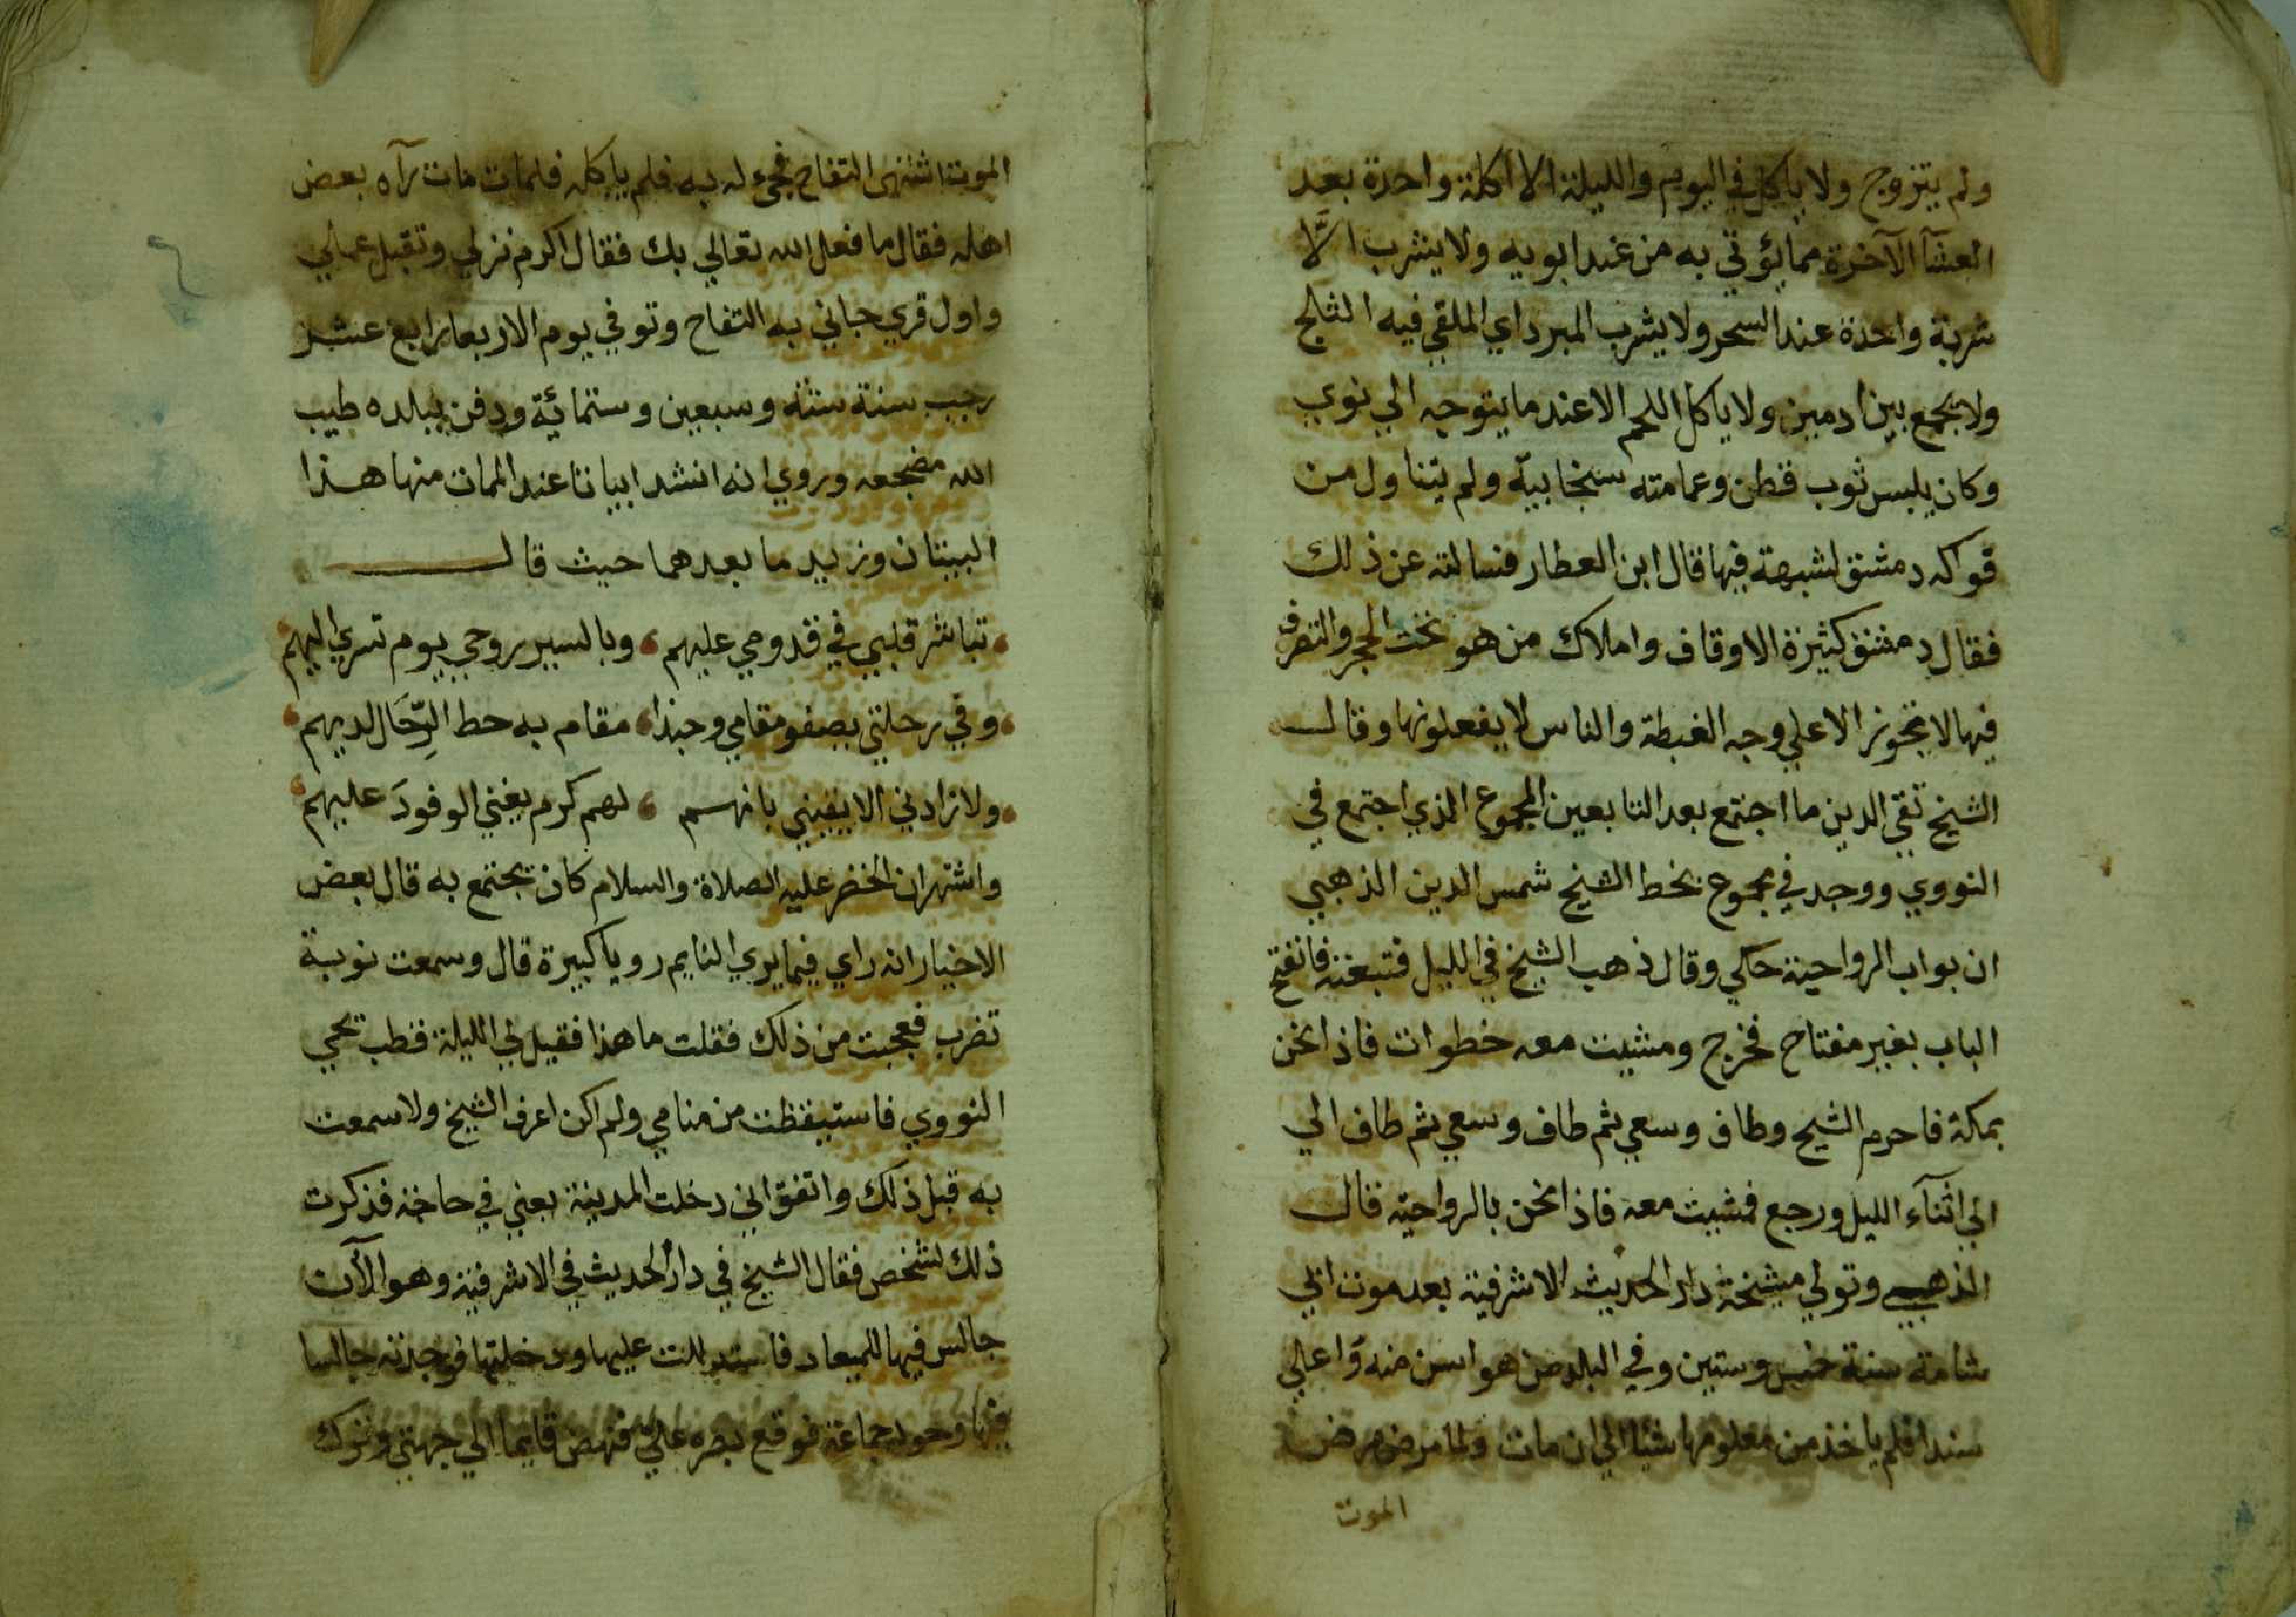 ولم يتزوج ولا ياكل في اليوم والليلة الا اكلة واحدة بعد
العشآ الآخرة مما يؤتي به من عند ابويه ولا يشرب الَّا
شربة واحدة عند السحر ولا يشرب المبرد اي الملقي فيه الثلج
ولا يجمع بين ادمين ولا ياكل اللحم الا عند ما يتوجه الي نوي
وكان يلبس ثوب قطن وعمامته سنجابيّه ولم يتناول من
فواكه دمشق لشبهة فيها قال ابن العطار فسالته عن ذلك
فقال دمشق كثيرة الاوقاف واملاك من هو تحت الحجر والتصرف
فيها لا تجوز الا علي وجه الغبطة والناس لا يفعلونها وقال
الشيخ تقي الدين ما اجتمع بعد التابعين المجموع الذي اجتمع في
النووي ووجد في مجموع بخط الشيخ شمس الدين الذهبي
ان بواب الرواحية حكي وقال ذهب الشيخ في الليل فتبعته فانفتح
الباب بغير مفتاح فخرج ومشيت معه خطوات فاذا نحن
بمكة فاحرم الشيخ وطاف وسعي ثم طاف وسعي ثم طاف الي
الي اثنآء الليل ورجع فمشيت معه فاذا نحن بالرواحية قال
الذهبي وتولي مشيخة دار الحديث الاشرفية بعد موت ابي
شامة سنة خمس وستين وفي البلد من هو اسن منه واعلي
سندا فلم ياخذ من معلومها شيا الي ان مات ولما مرض مرض
الموت
الموت اشتهي التفاح فجيء له به فلم ياكله فلما مات رآه بعض
اهله فقال ما فعل الله تعالي بك فقال اكرم نزلي وتقبل عملي
واول قري جاني به التفاح وتوفي يوم الاربعا رابع عشر
رجب سنة ستة وسبعين وستمائة ودفن ببلده طيب
الله مضجعه وروي انه انشد ابياتا عند الممات منها هذا
البيتان وزيد ما بعدهما حيث قال
تباشر قلبي في قدومي عليهم وبالسير روحي يوم تسري اليهم
وفي رحلتي يصفو مقامي وحبذا مقام به حط الرِّحَال لديهم
ولا زاد لي الا يقيني بانهم لهم كرم يغني الوفودَ عليهم
واشتهر ان الخضر عليه الصلاة والسلام كان يجتمع به قال بعض
الاخيار انه راي فيما يري النايم رويا كبيرة قال وسمعت نوبة
تضرب فعجبت من ذلك فقلت ما هذا فقيل لي الليلة قطب يحي
النووي فاستيقظت من منامي ولم اكن اعرف الشيخ ولا سمعت
به قبل ذلك واتفق اني دخلت المدينة يعني في حاجة فذكرت
ذلك لشخص فقال الشيخ في دار الحديث في الاشرفية وهو الآن
جالس فيها للميعاد فاستدللت عليها ودخلتها فوجدته جالسا
فيها وحوله جماعة فوقع بصره علي فنهض قايما الي جهتي وترك